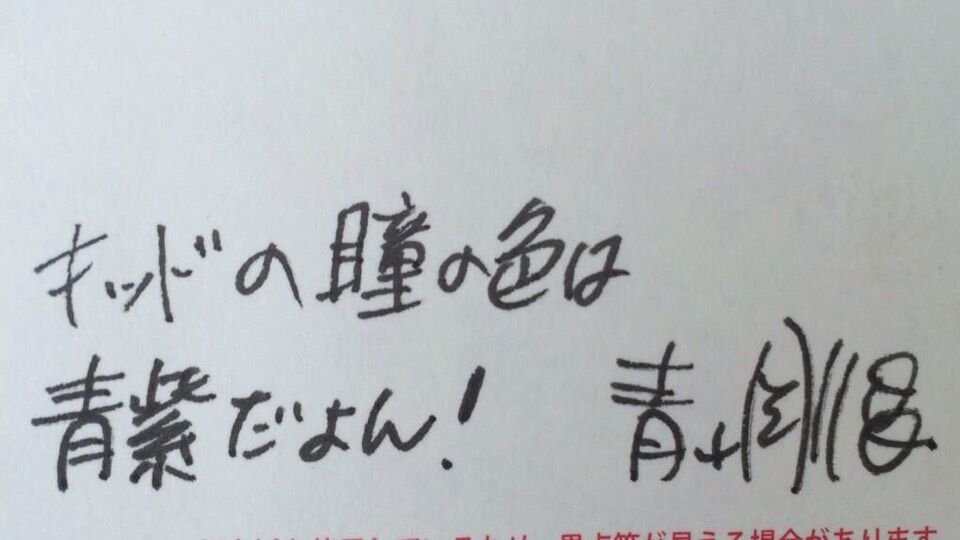 キッドの瞳の色は
青紫だよん! 青山剛昌
黒点等が見える場合があります